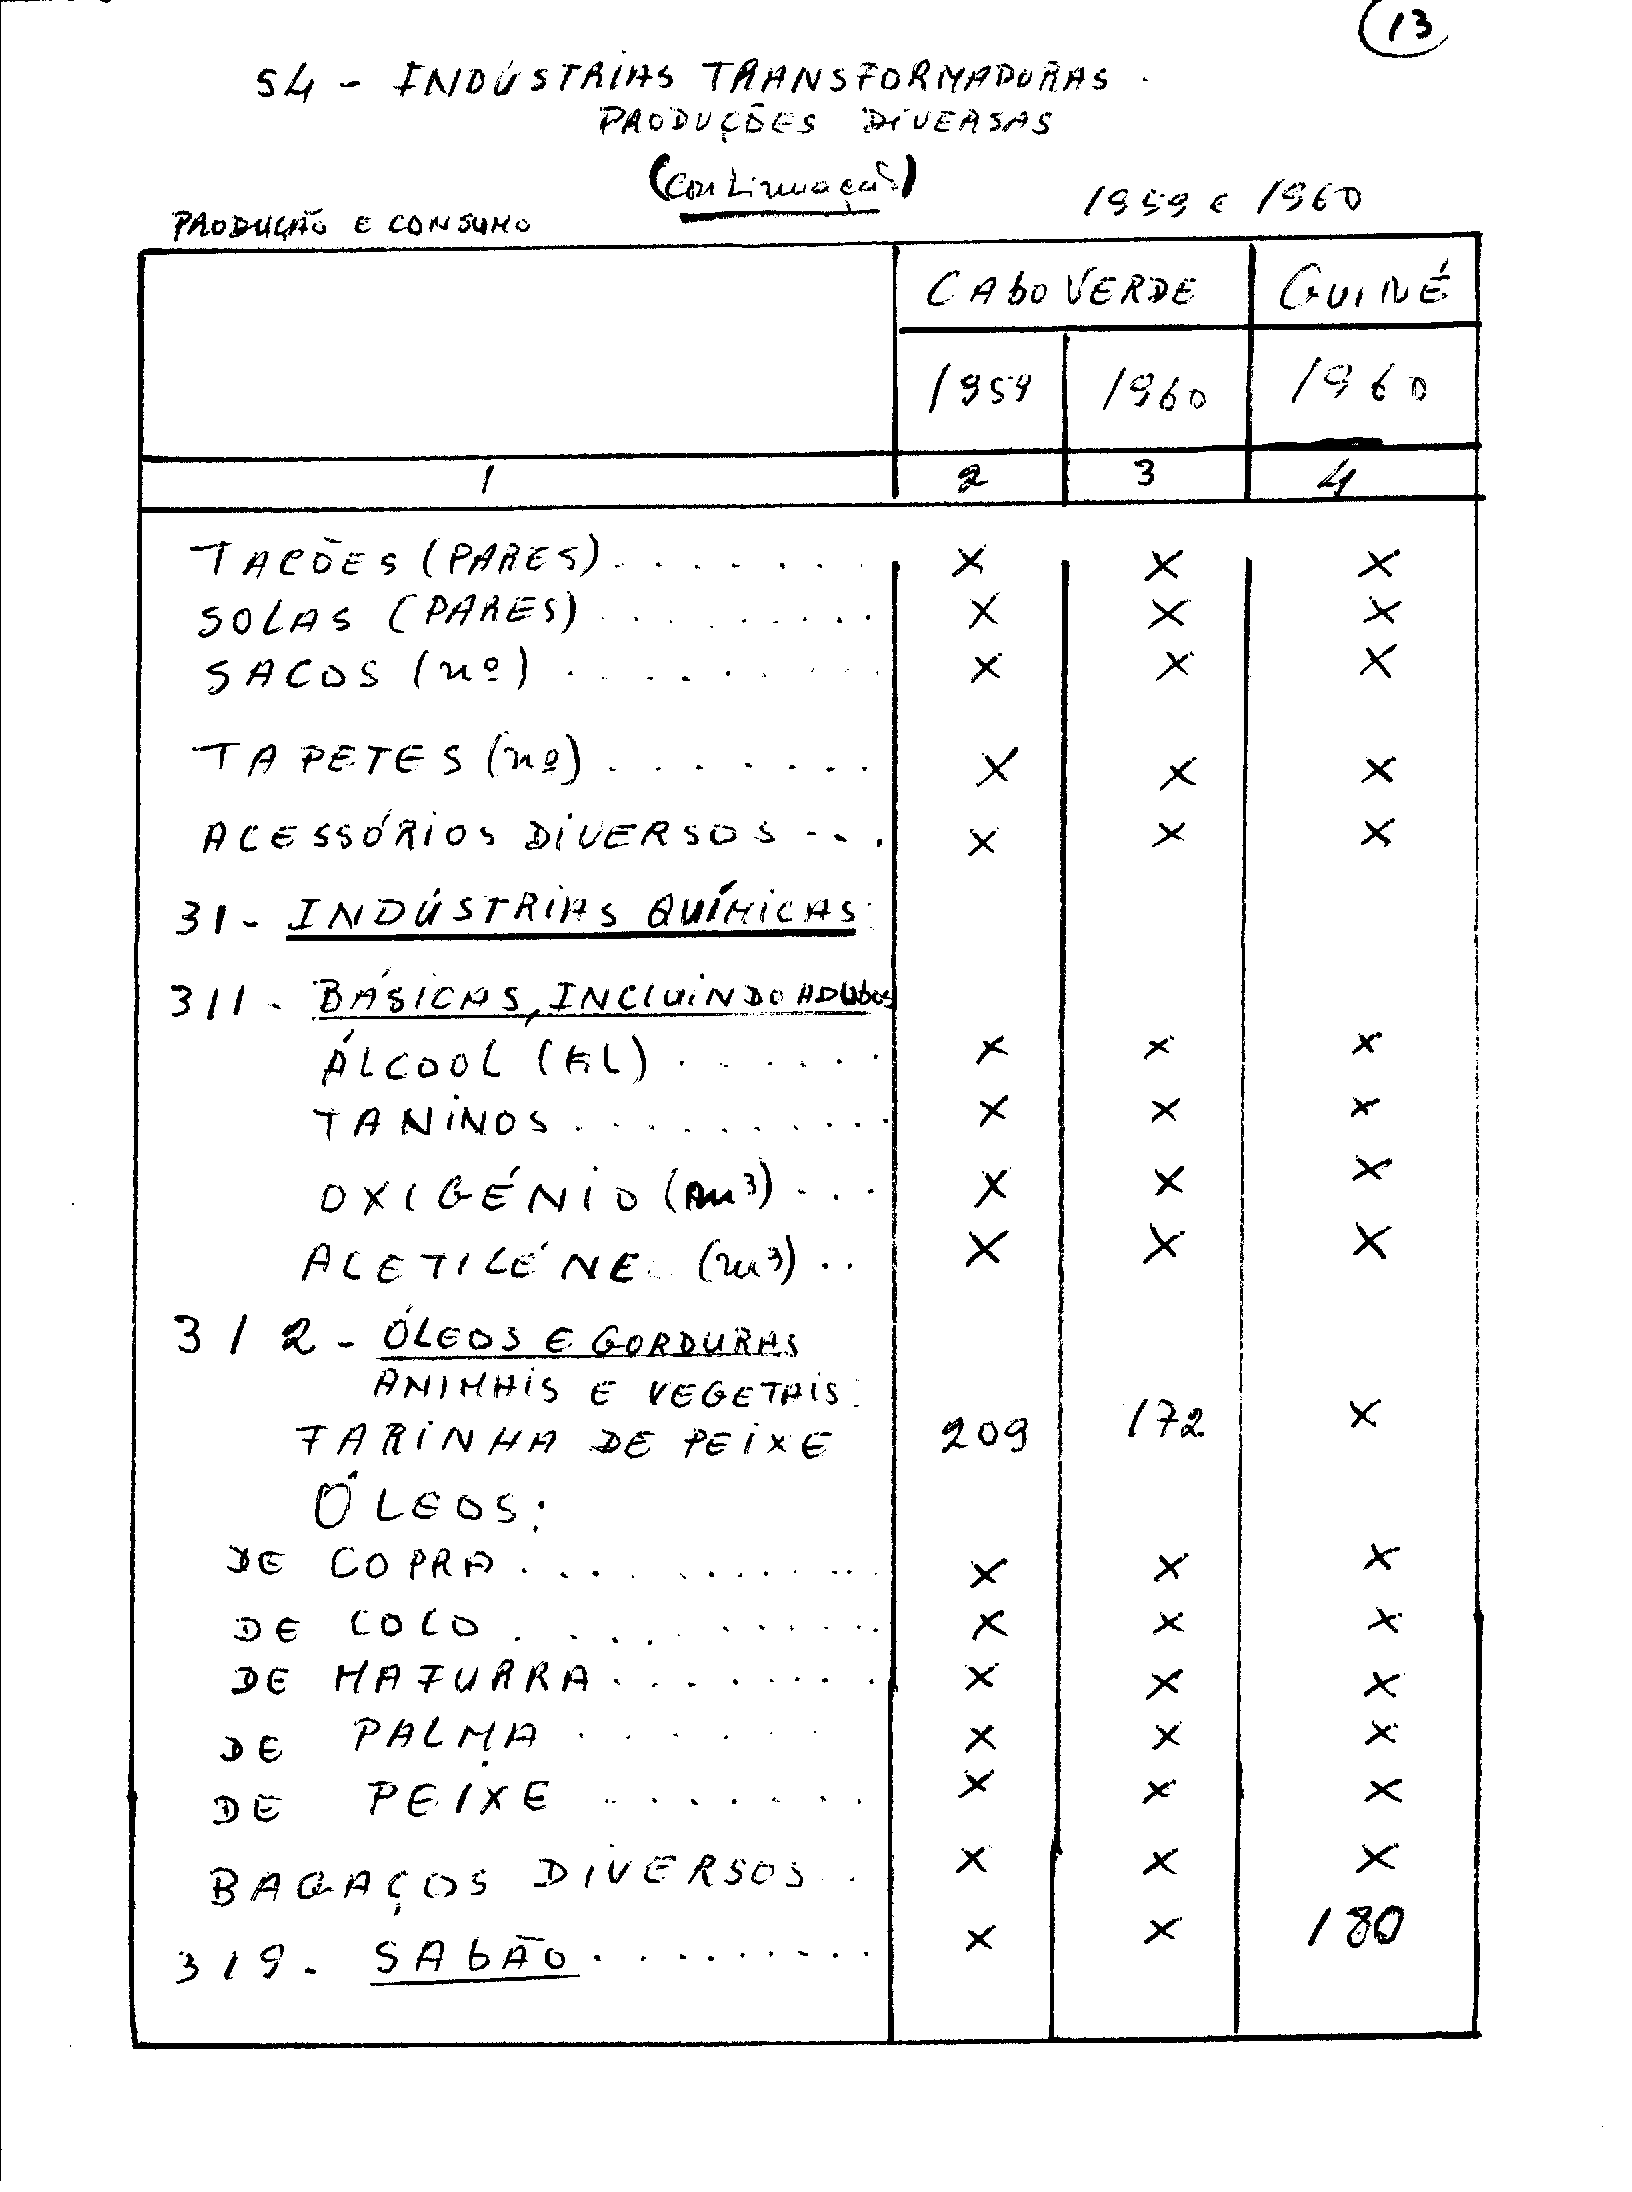 13
54 - INDÚSTRIAS TRANSFORMADORAS.
PRODUÇÕES DIVERSAS
(Continuação)
1959 e 1960
PRODUÇÃO E CONSUMO
CABO VERDE GUINÉ
1959 1960 1960
1 2 3 4
TACÕES (PARES) . . . . . . . × × ×
SOLAS (PARES) . . . . . . . . . × × ×
SACOS (nº) . . . . . . . . . × × ×
TAPETES (nº) . . . . . . . × × ×
ACESSÓRIOS DIVERSOS - . . × × ×
31 - INDÚSTRIAS QUÍMICAS:
311 - BÁSICAS, INCLUINDO ADUBOS
ÁLCOOL (HL) . . . . . . × × ×
TANINOS . . . . . . . . . . × × ×
OXIGÉNIO (m³) . . . . × × ×
ACETILÉNE (m³) . . × × ×
312 - ÓLEOS E GORDURAS
ANIMAIS E VEGETAIS:
FARINHA DE PEIXE 209 172 ×
ÓLEOS:
DE COPRA . . . . . . . . . . . × × ×
DE COCO . . . . . . . . . . × × ×
DE MAFURRA . . . . . . . . × × ×
DE PALMA . . . . . . . × × ×
DE PEIXE . . . . . . . × × ×
BAGAÇOS DIVERSOS . . × × ×
319 - SABÃO . . . . . . . . . × × 180